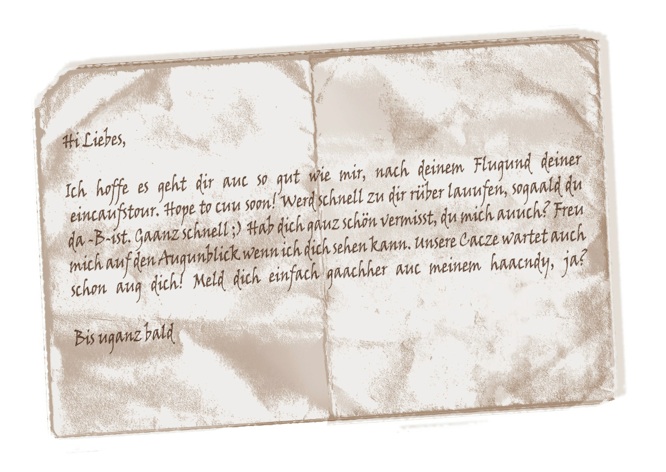 Hi Liebes,
Ich hoffe es geht dir auc so gut wie mir, nach deinem Flugund deiner
eincaufstour. Hope to cuu soon! Werd schnell zu dir rüber lauufen, sogaald du
da -B-ist. Gaanz schnell ;) Hab dich gauz schön vermisst, du mich auuch? Freu
mich auf den Augunblick wenn ich dich sehen kann. Unsere Cacze wartet auch
schon aug dich! Meld dich einfach gaachher auc meinem haacndy, ja?
Bis uganz bald